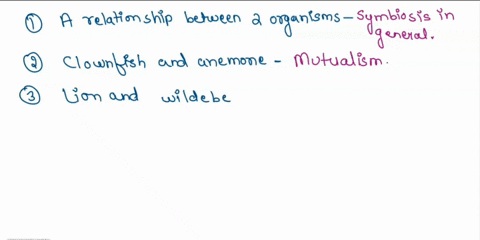 ① A relationship between 2 organisms - Symbiosis in
general.
② Clownfish and anemone - Mutualism.
③ Lion and wildebe